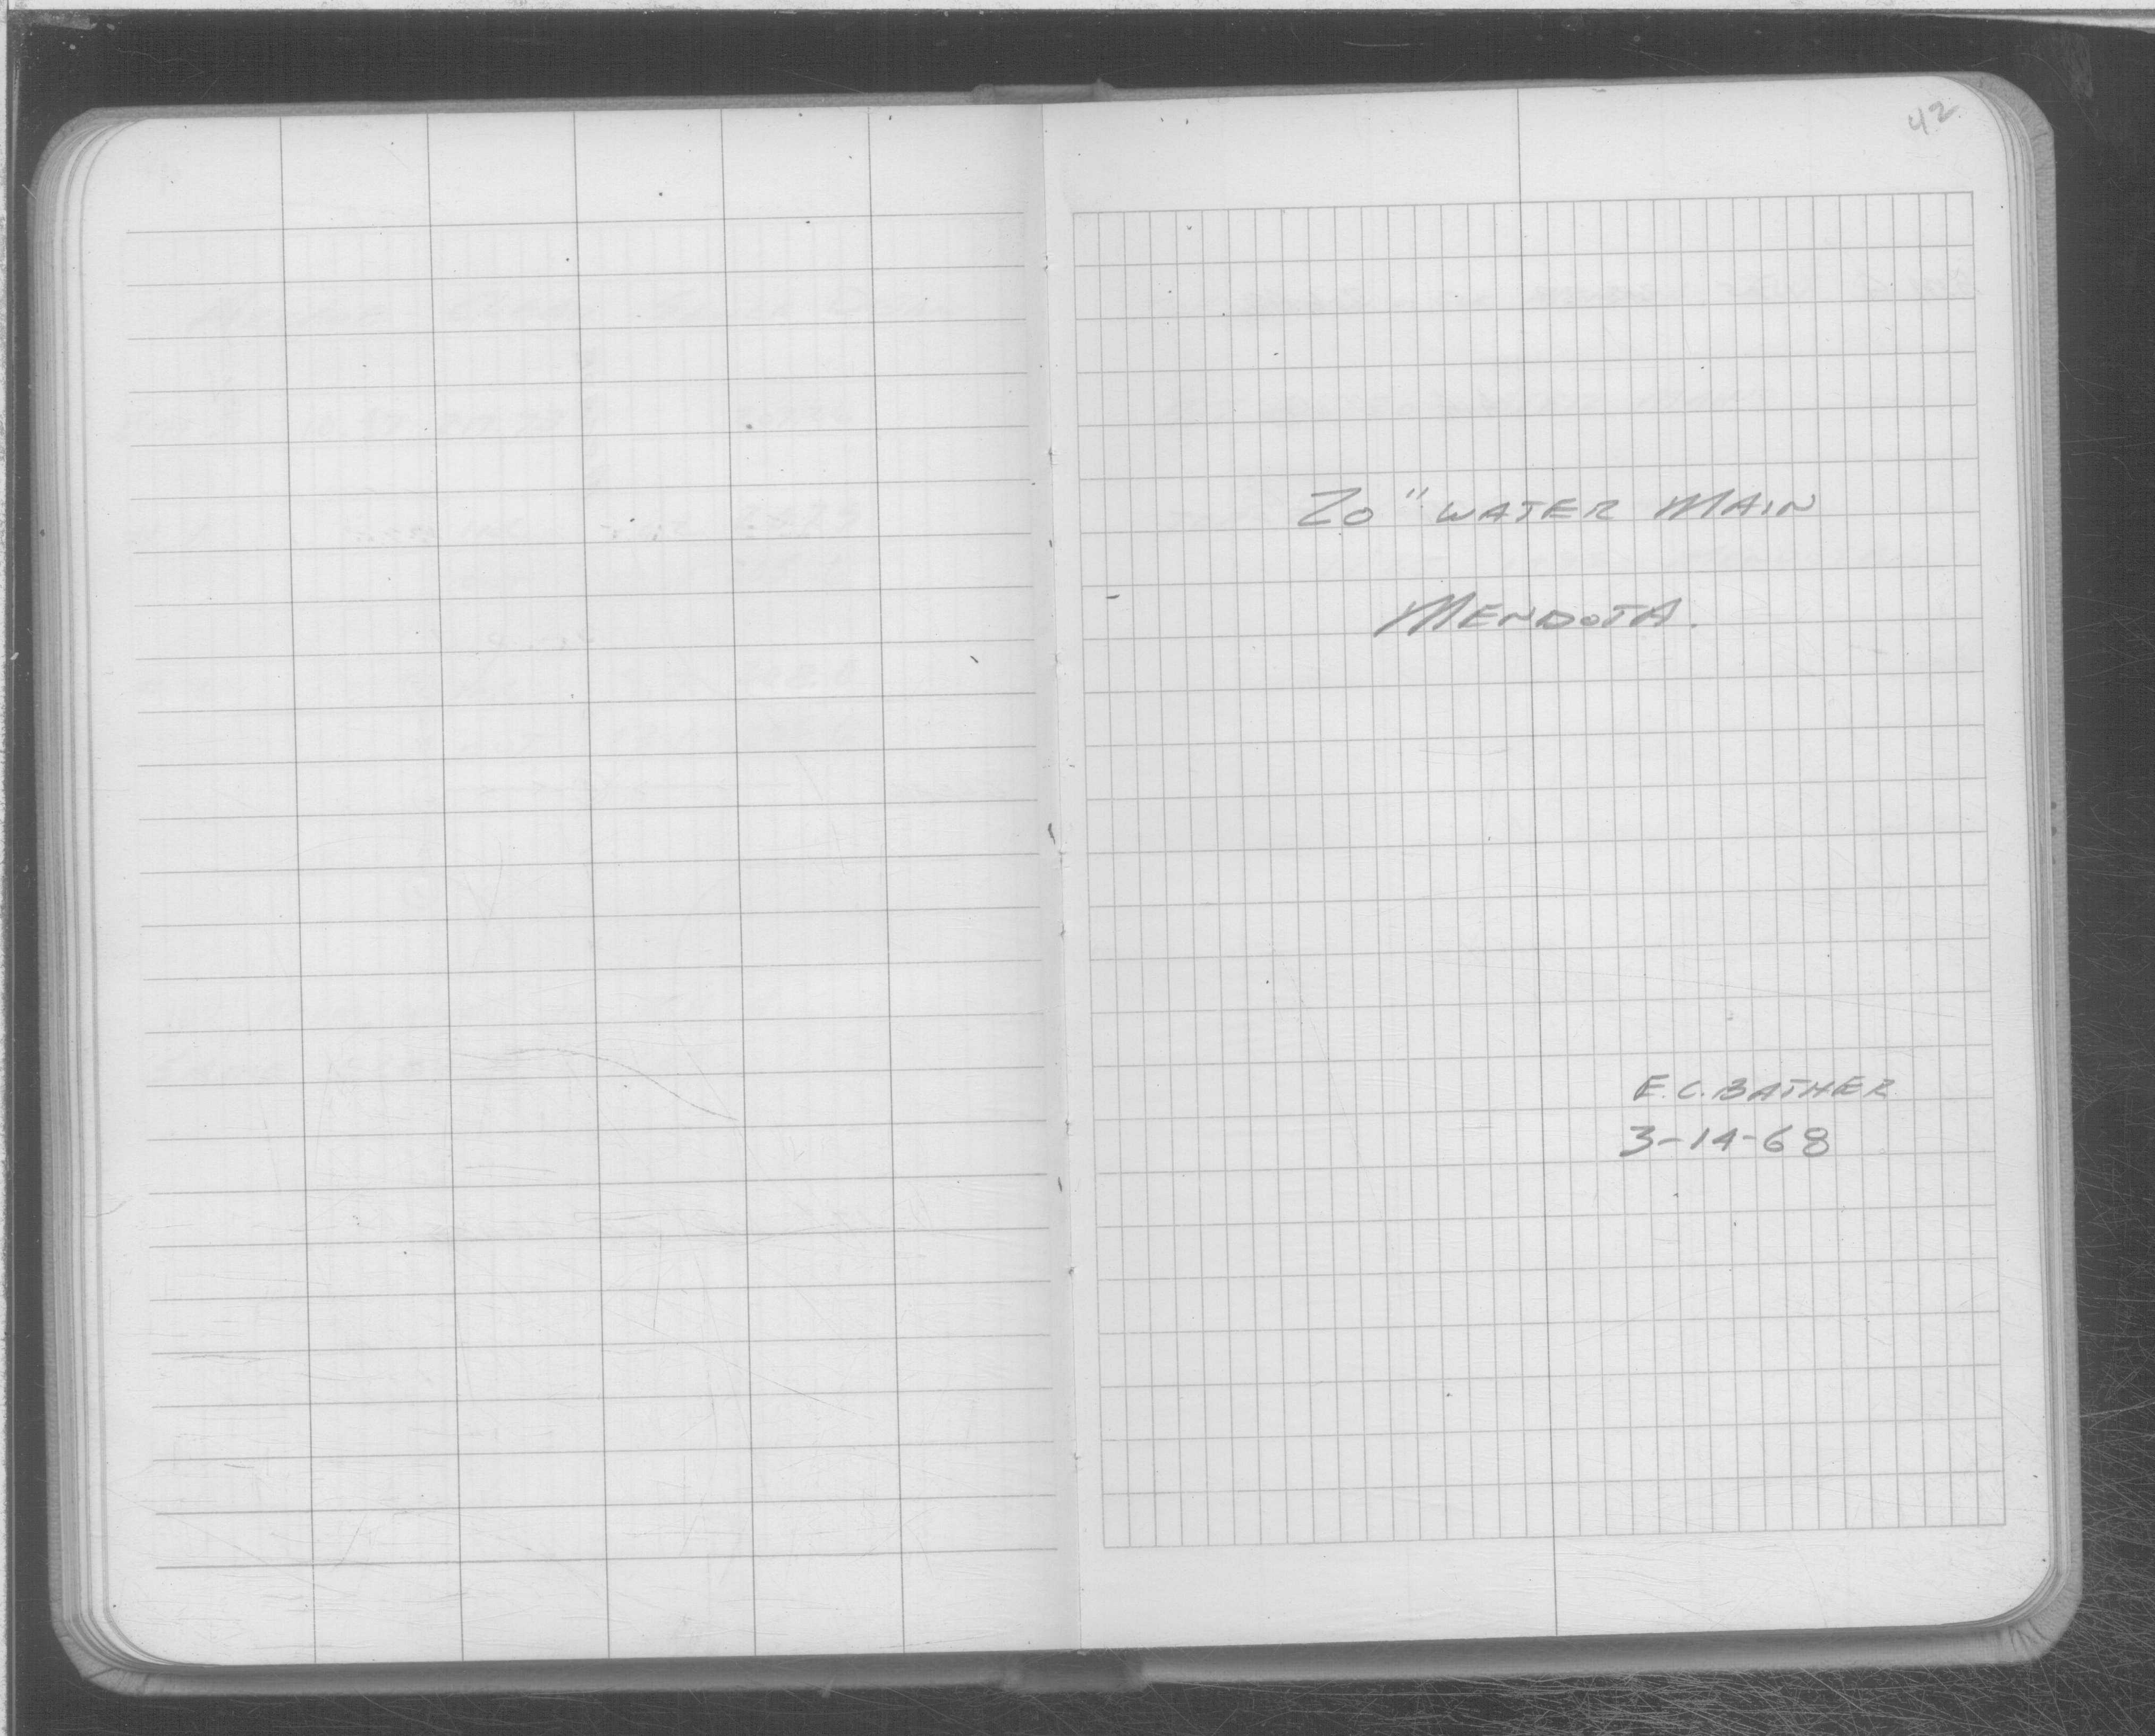 42
20" WATER MAIN
MENDOTA.
E.C. BATHER
3-14-68